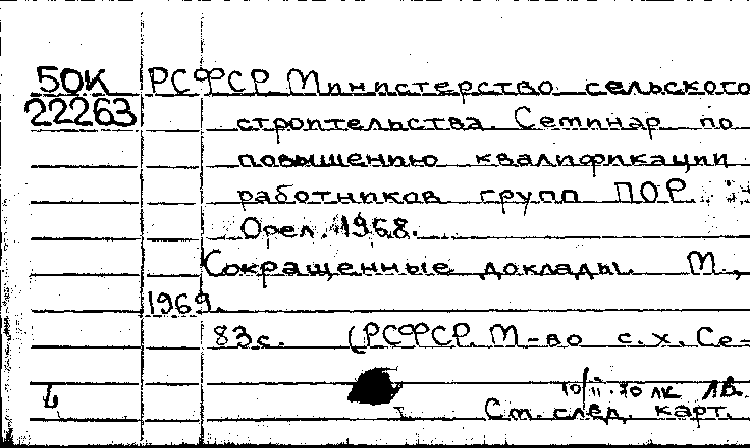 50К РСФСР Министерство сельского
22263 строительства. Семинар по
повышению квалификации
работников групп ПОР.
Орел. 1968.
Сокращенные доклады. М.,
1969.
83с. (РСФСР. М-во с.х. Се-
10/II-70 лк ЛВ.
См. след. карт.